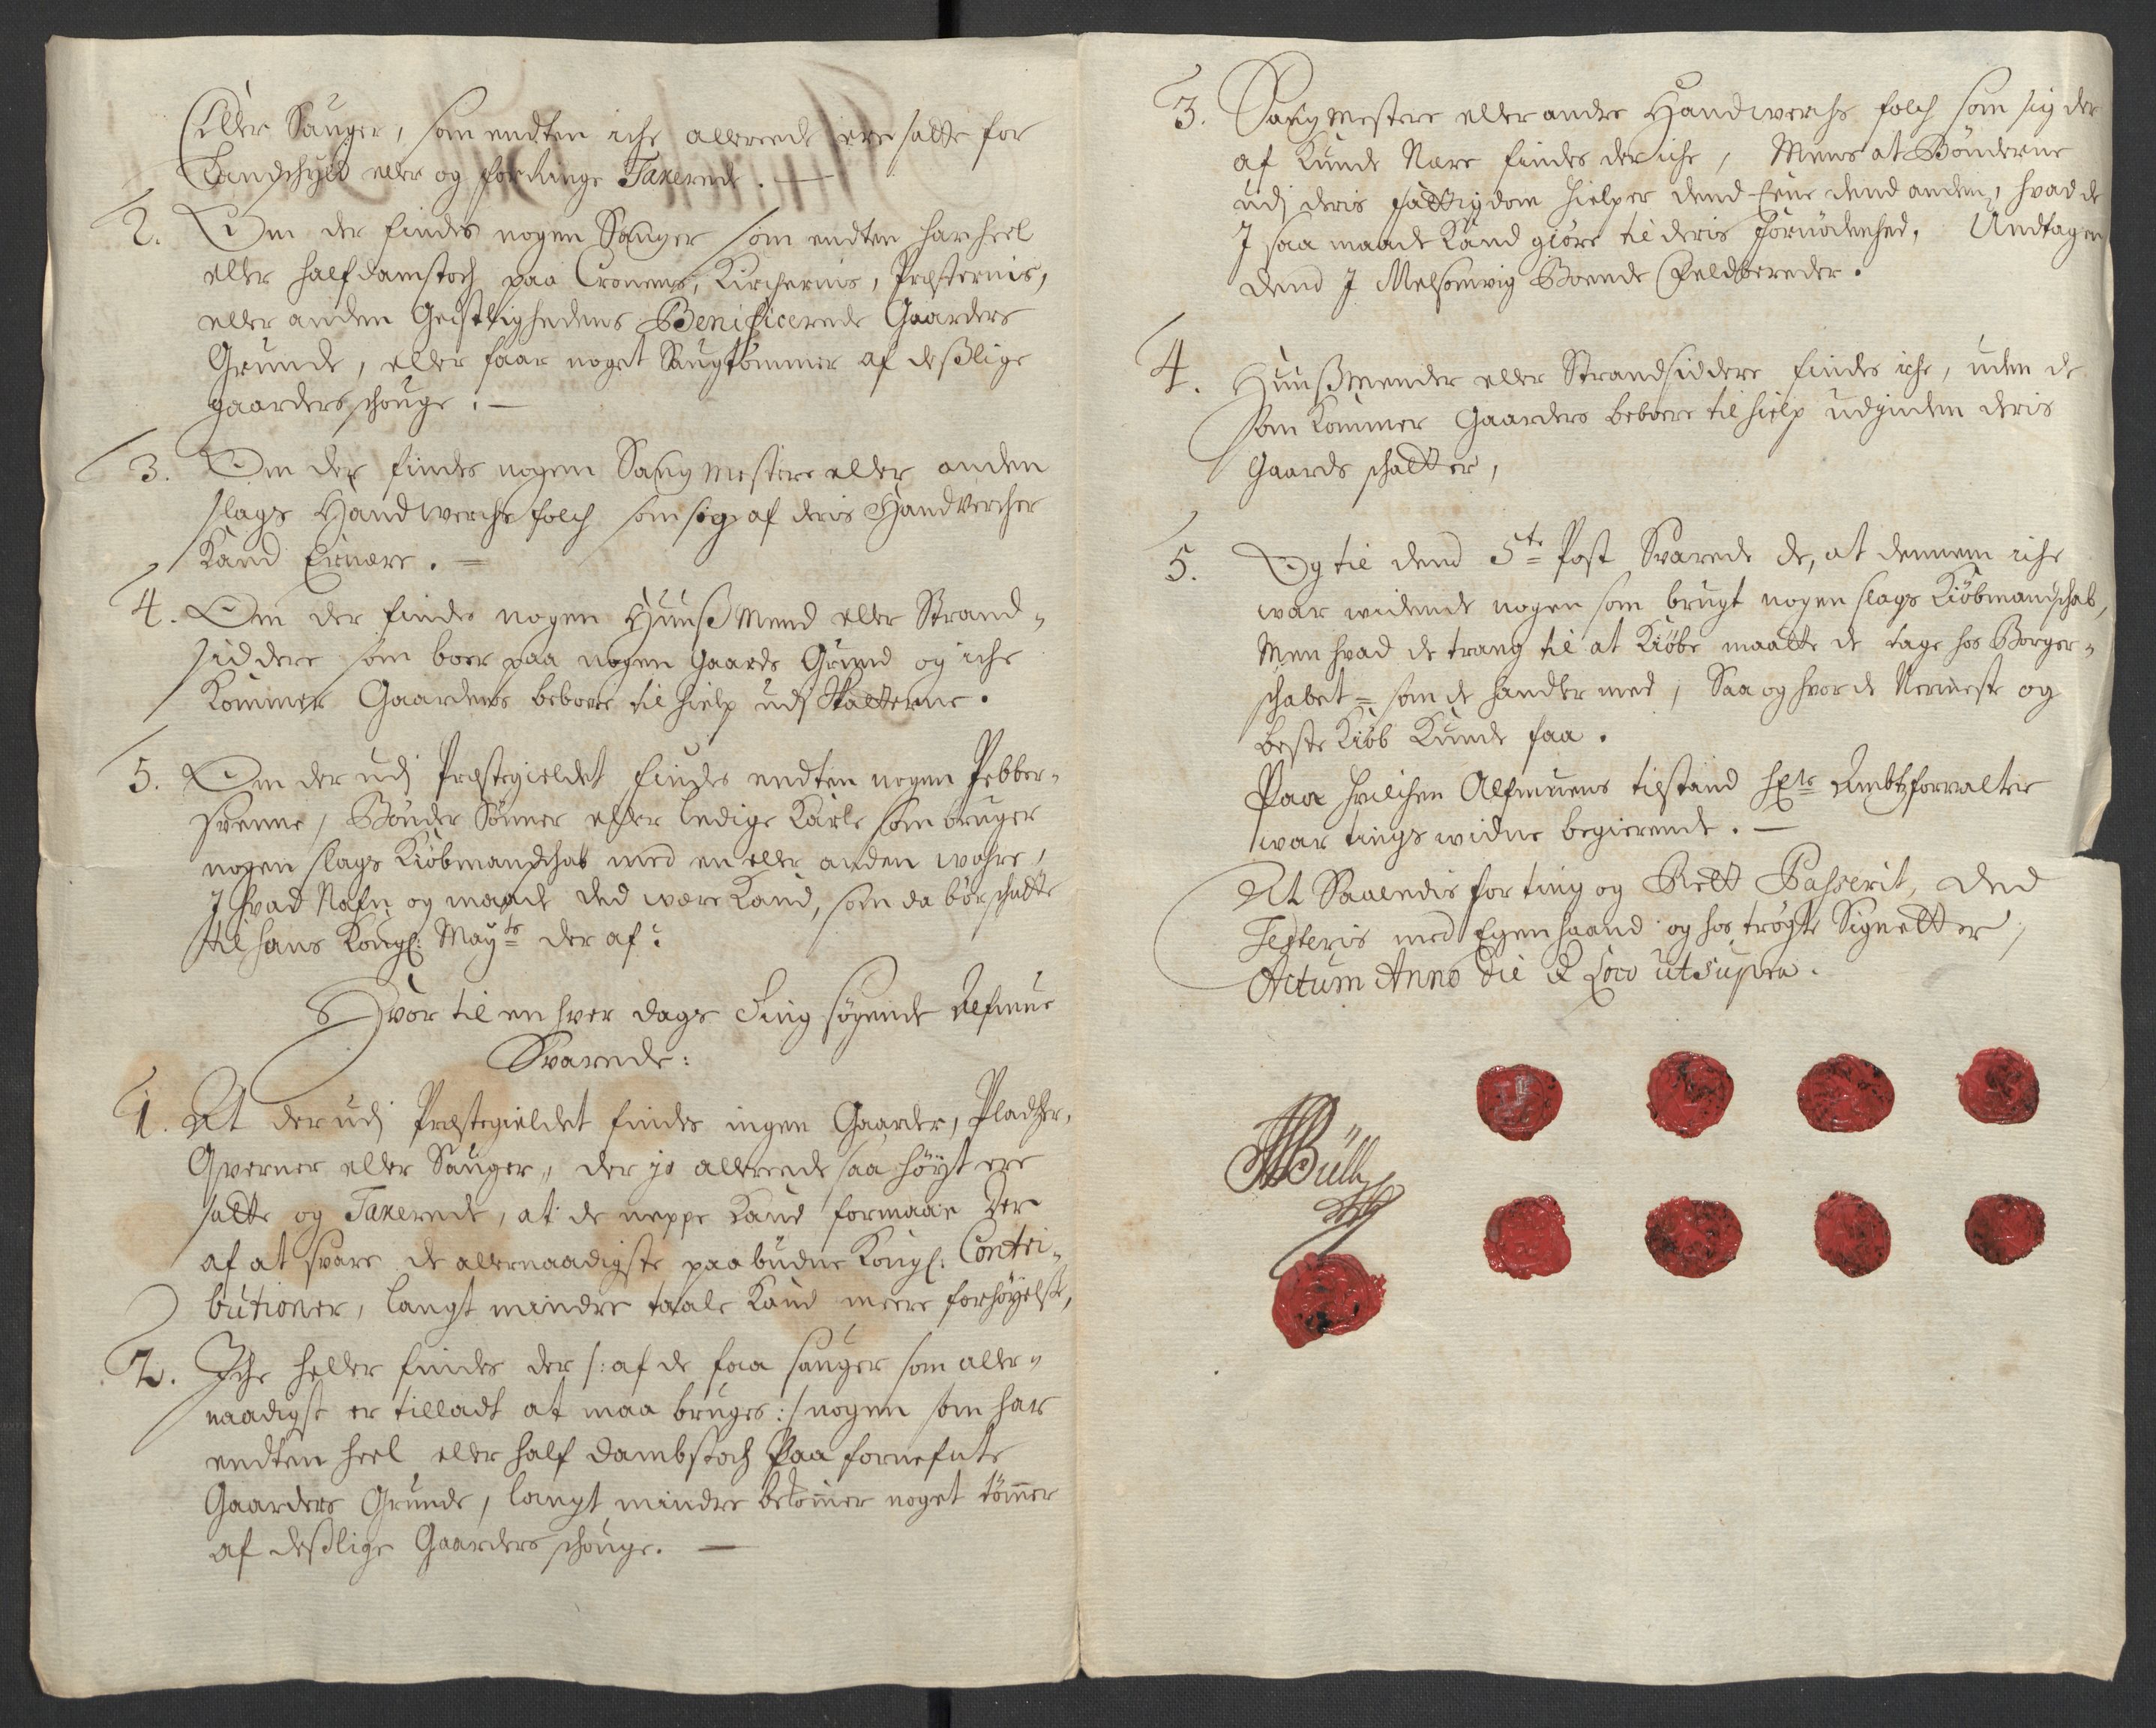 Eller Sauger, som endten iche allereede ere satte for
Landschyld eller og forringe Taxerede. —
2. Om der findis nogen Sauger som endten har heel
eller half damstoch paa Cronens, Kirchernis, Presternis,
eller anden Geistlighedens Benificerede Gaarders
Grunde, eller faar noget Saugtømmer af deßlige
gaarders schouge. —
3. Om der findes nogen Saug Mestere eller anden
slags Handtwerchs folch som sig af deris Handtvercher
Kand Ernære. —
4. Om der findes nogen Huuß Mend eller Strand-
siddere som boer paa nogen Gaards Grund og iche
Kommer Gaardens beboere til hielp udj Skatterne.
5. Om der udj Prestegieldet findes endten nogen Pebber-
svenne, Bønder Sønner eller ledige Karle som bruger
nogen slags Kiøbmandschab med en eller anden wahre,
J hvad Nafn og maade ded være Kand, som da bør schatte
til hans Kongl: Mayts der af?
Hvor til en hver dags Ting søgende Allmue
Svarede:
1. At der udj Prestegieldet findes ingen Gaarder, Pladtzer,
Qverner eller Sauger, der jo allereede saa høyt ere
satte og Taxerede, at de neppe Kand formaae Der
af at svare de allernaadigste paabudne Kongl: Contri-
butioner, langt mindre taale Kand meere forhøyelse,
2. Iche heller findes der /: af de faa sauger som aller-
naadigst er tilladt at maa bruges :/ nogen som har
endten heel eller half dambstoch Paa fornefnte
Gaarders Grunde, langt mindre bekommer noget tømmer
af deßlige Gaarders schouge. —
3. Saug Mestere eller andre Handtwerchs folch som sig der
af Kunde Nære findes der iche, Mens at Bønderne
udj deris fattigdom hielper dend Eene dend anden, hvad de
J saa maade Kand giøre til deris fornødenhed, Undtagen
dend J Melsomvig Boende Feldbereder.
4. Huußmænder eller Strandsiddere findes iche, uden de
som Kommer Gaarders beboere til hielp udj inden deris
Gaards schatter,
5. Og til dend 5te Post Svarede de, at dennem iche
war widende nogen som brugt nogen slags Kiøbmandschab,
Men hvad de trang til at Kiøbe maatte de tage hos Borger-
schabet = som de handler med, Saa og hvor de Nermeste og
beste Kiøb Kunde faa.
Paa hvilchen Allmuens tilstand Hr Ambtsforvalter
war tings widne begierende. —
At Saaledis for ting og Rett Passerit, Ded
Testeris med Egen haand og hos trøgte Signetter,
Actum Anno Die & Loco ut supra.